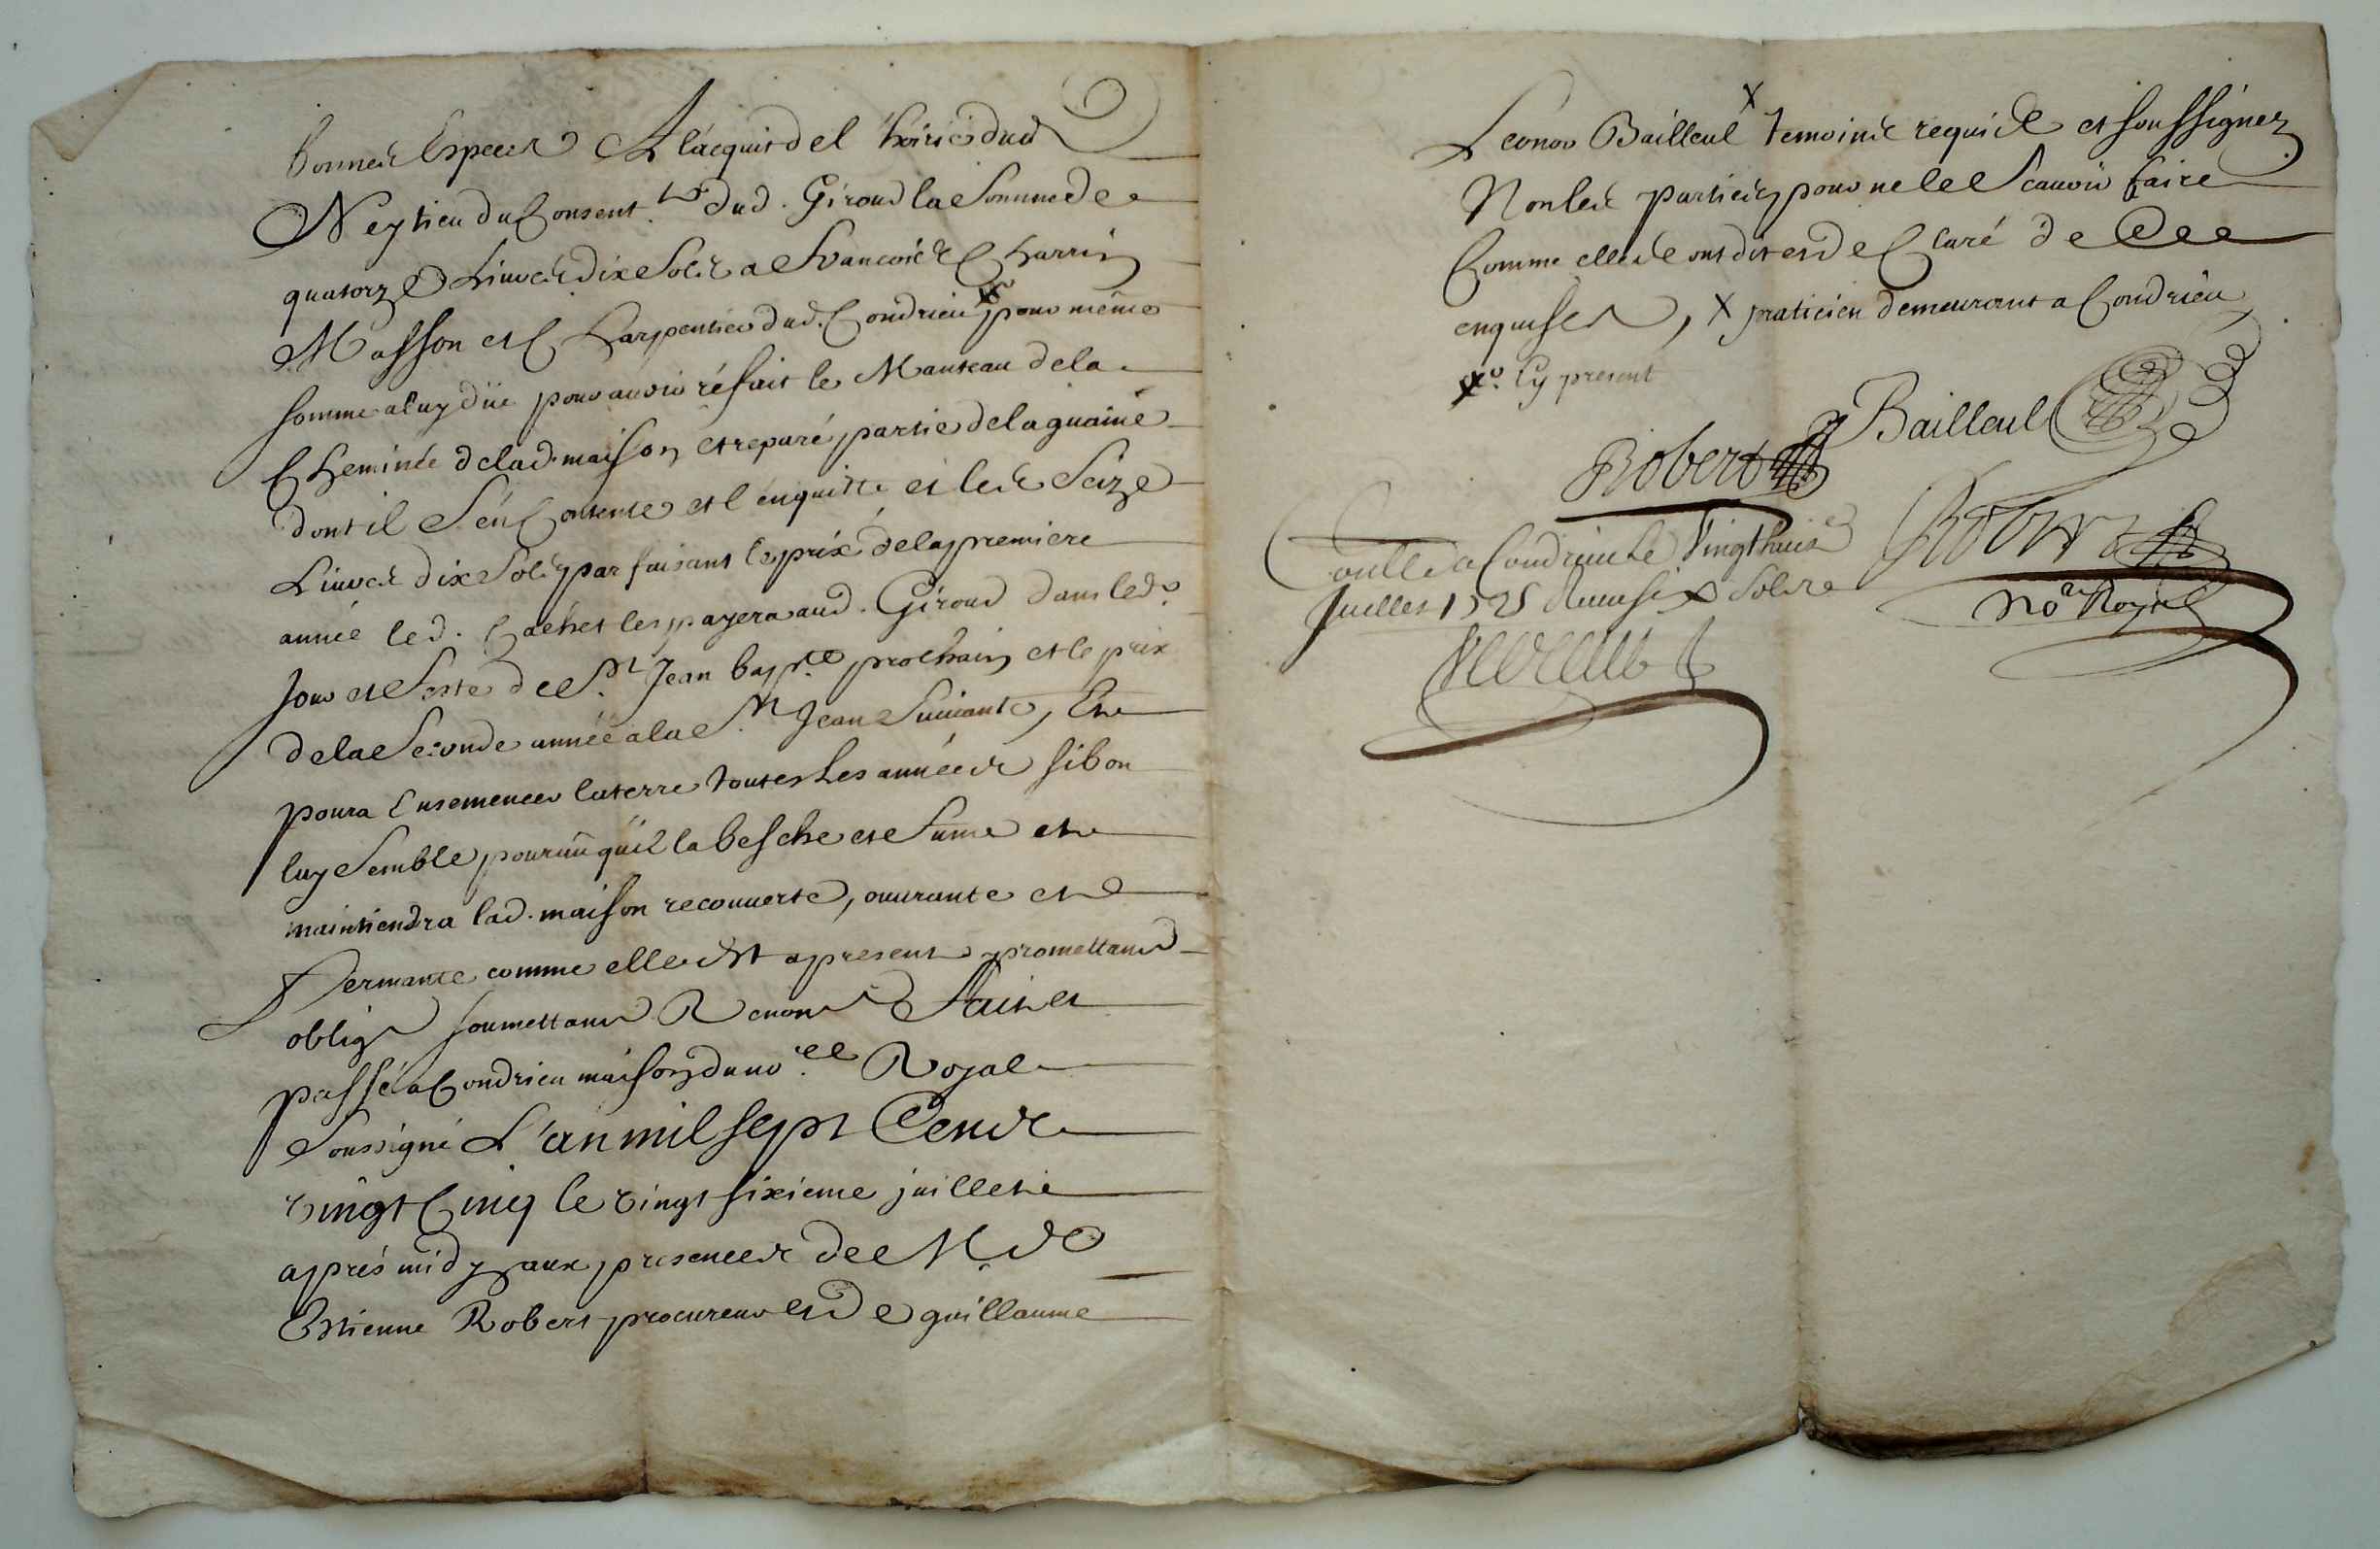 bonnes Especes A lacquit del hoirie dud
Neytieu du Consent.t dud. Giroud la Somme de
quatorze Livres dix Sols a francois Charrin
Masson et Charpentier dud. Condrieu x pour même
somme a luy düe pour avoir réfait le Manteau de la
Cheminée de lad. maison et reparé partie de la guaine
dont il s'en Contente et l'enquitte et les Seize
Livres dix Sols parfaisant le prix de la premiere
année led. Gachet les payera aud. Giroud dans led.
Jour et feste de St. Jean bapte. prochain et le prix
de la Seconde année a la St. Jean Suivante, Et
poura Ensemencer la terre toutes Les années si bon
luy Semble pourvû qu'il la besche et fume et
maintiendra lad. maison recouverte, ouvrante et
fermante comme elle est apresent promettant
oblig soumettant Renon fait et
passé a Condrieu maison du no.re Royal
Soussigné L'an mil sept Cents
vingt Cinq le vingt sixieme juillet
aprés midy aux presences de M.e
Estienne Robert procureur et de guillaume
Leonor Bailleul x temoins requis et soussignez
Non les parties pour ne le Scavoir faire
Comme elles ont dit et de Claré de Ce
enquises, x praticien demeurant a Condrieu
x Cy present
Bailleul
Robert
Contlé a Condrieu Le Vingt huit
Juillet 1725 Receu six Sols
Robert
No.re Royal